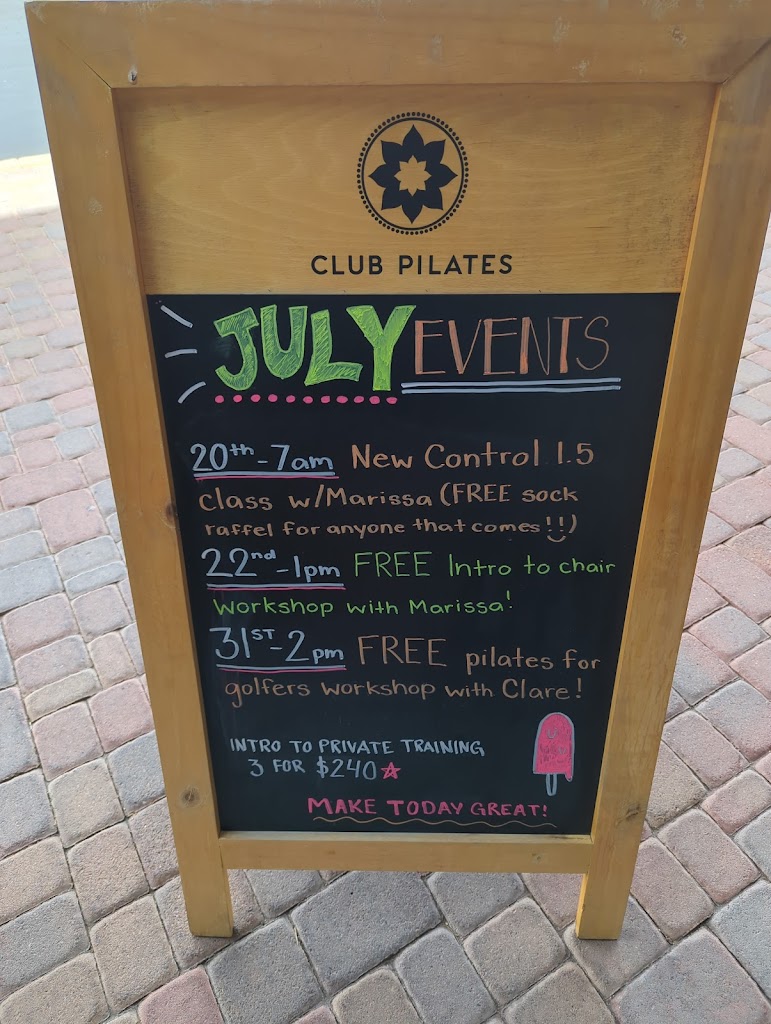 CLUB PILATES
JULY EVENTS
20th-7am New Control 1.5
class w/Marissa (FREE sock
raffel for anyone that comes!!)
22nd-1pm FREE Intro to chair
workshop with Marissa!
31ST-2pm FREE pilates for
golfers workshop with Clare!
INTRO TO PRIVATE TRAINING
3 FOR $240
MAKE TODAY GREAT!